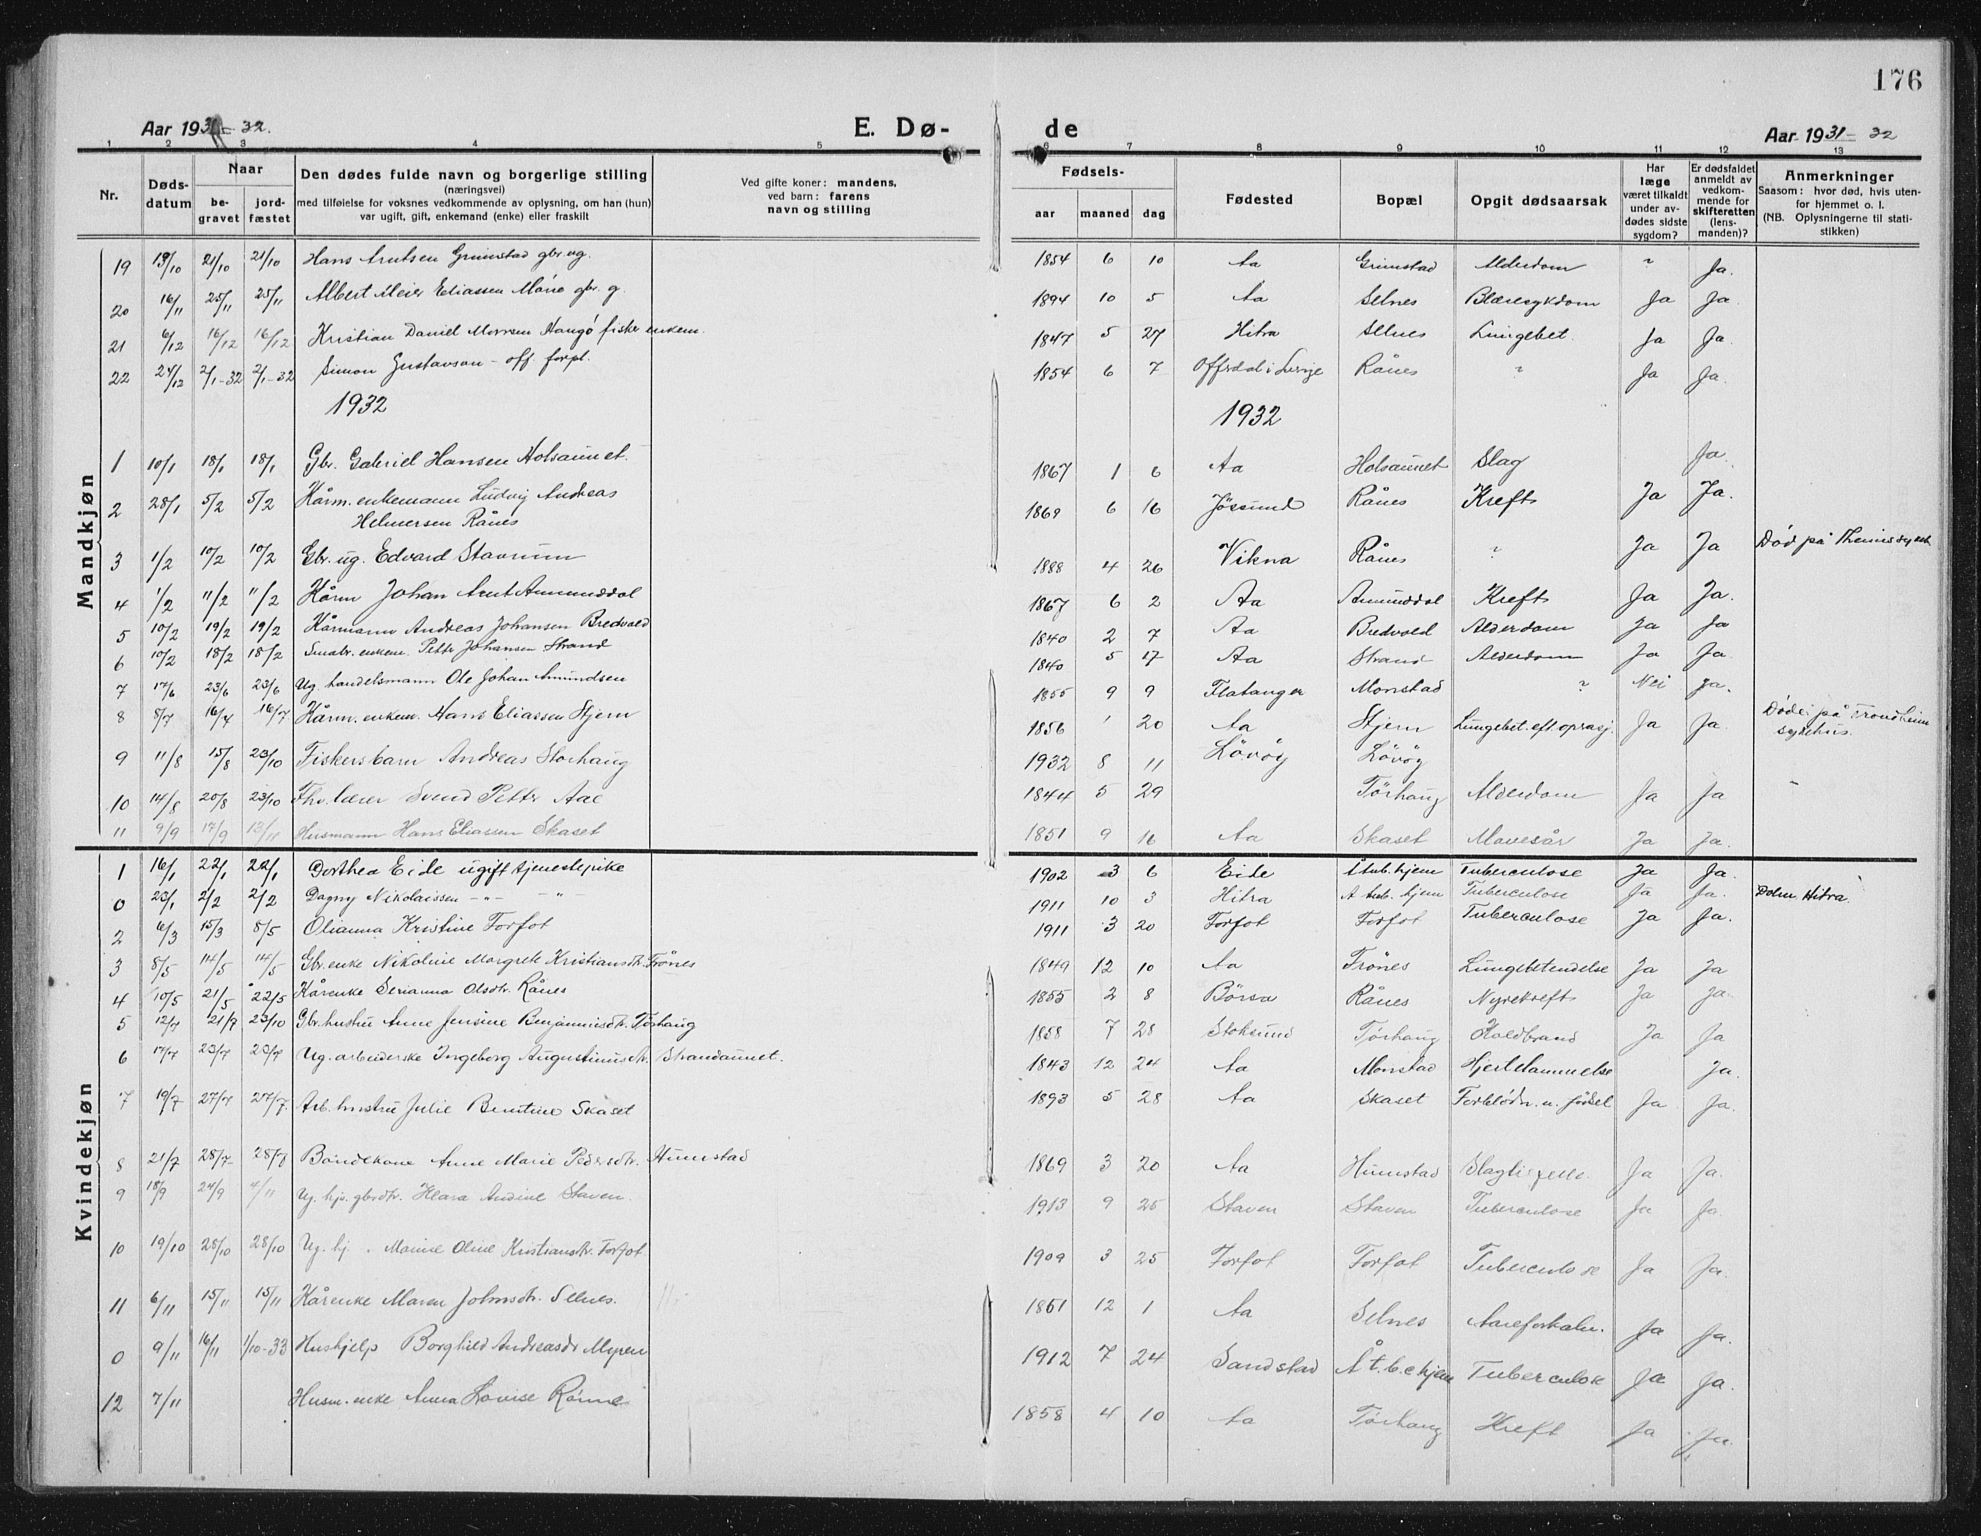 176
Aar 1931-32.
E. Dø-
de
Aar 1931-32
1 2 3 4 5 6 7 8 9 10 11 12 13
Nr.
Døds-
datum
Naar
be-
gravet
jord-
fæstet
Den dødes fulde navn og borgerlige stilling
(næringsvei)
med tilføielse for voksnes vedkommende av oplysning, om han (hun)
var ugift, gift, enkemand (enke) eller fraskilt
Ved gifte koner: mandens,
ved barn: farens
navn og stilling
Fødsels-
aar maaned dag
Fødested
Bopæl
Opgit dødsaarsak
Har
læge
været tilkaldt
under av-
dødes sidste
sygdom?
Er dødsfaldet
anmeldt av
vedkom-
mende for
skifteretten
(lens-
manden)?
Anmerkninger
Saasom: hvor død, hvis uten-
for hjemmet o. l.
(NB. Oplysningerne til stati-
stikken)
Mandkjøn
19 19/10 21/10 21/10 Hans Arntsen Grimstad gbr. ug. 1854 6 10 Aa Grimstad Alderdom " Ja.
20 16/11 25/11 25/11 Albert Meier Eliassen gbr. g. 1894 10 5 Aa Selnes Blæresykdom Ja Ja.
21 6/12 16/12 16/12 Kristian Daniel fisker enkem. 1847 5 27 Hitra Selnes Lungebet. Ja Ja.
22 24/12 2/1-32 2/1-32 Simon Gustavson - off. forpl. 1854 6 7 Offerdal i Rånes " Ja Ja.
1932
1932
1 10/1 18/1 18/1 Gbr. Gabriel Hansen Holsaunet. 1867 1 6 Aa Holsaunet Slag Ja.
2 28/1 5/2 5/2 Kårm. enkemann Ludvig Andreas
Helmersen Rånes 1869 6 16 Jøssund Rånes Kreft Ja Ja.
3 1/2 10/2 10/2 Gbr. ug. Edvard Stavrum 1888 4 26 Vikna Rånes " Ja Ja Død på
4 1/2 11/2 11/2 Kårm Johan Arnt Amunddal 1867 6 2 Aa Amunddal Kreft Ja Ja.
5 10/2 19/2 19/2 Kårmann Andreas Johansen Bredvold 1840 2 7 Aa Bredvold Alderdom Ja Ja
6 10/2 18/2 18/2 Småbr. enkem. Petter Johansen Strand 1840 5 17 Aa Strand Alderdom Ja Ja.
7 17/6 23/6 23/6 Ug. handelsmann Ole Johan Amundsen 1855 9 9 Flatanger Monstad ? Nei Ja.
8 8/7 16/7 16/7 Kårm. enkem. Hans Eliassen Stjern 1856 1 20 Aa Stjern Lungebet. eft. oprasj. Ja Ja. Døde på Trondheim
sykehus.
9 11/8 15/8 23/10 Fiskersbarn Andreas Storhaug 1932 8 11 Løvøy Løvøy
10 14/8 20/8 23/10 Fhv. lærer Svend Petter Aae 1844 5 29 Tørhaug Alderdom Ja Ja -
11 9/9 17/9 13/11 Husmann Hans Eliassen Skaset 1851 9 16 Aa Skaset Mavesår Ja Ja.
Kvindekjøn
1 16/1 22/1 22/1 Dorthea Eide ugift tjenestepike 1902 3 6 Eide Å tub. hjem Tuberculose Ja Ja.
0 23/1 2/2 2/2 Dagny Nikolaissen -"- -"- 1911 10 3 Hitra A tub. hjem Tuberculose Ja Ja. Dolm Hitra.
2 6/3 15/3 8/5 Olianna Kristine Forfot 1911 3 20 Forfot Forfot Tuberculose Ja Ja.
3 8/5 14/5 14/5 Gbr. enke Nikoline Margrete Kristiansdtr. Trønes 1849 12 10 Aa Trönes Lungebetendelse Ja Ja
4 10/5 21/5 22/5 Kårenke Serianna Olsdtr. Rånes 1855 2 8 Børsa Rånes Nyrekreft Ja Ja.
5 12/7 21/7 23/10 Gbr. hustru Anne Jensine Benjaminsdtr. Tørhaug 1858 7 28 Stoksund Tørhaug Koldbrand Ja Ja
6 17/7 23/7 23/7 Ug. arbeiderske Ingeborg Augustinusdtr. Strandaunet. 1843 12 24 Aa Monstad Hjertelammelse Ja.
7 19/7 27/7 27/7 Arb. hustru Julie Bentine Skaset 1893 5 28 Aa Skaset Forblødn. u. fødsel Ja Ja.
8 21/7 28/7 28/7 Bondekone Anne Marie Pedersdtr. Humstad 1869 3 20 Aa Humstad Slagtilfelle. Ja Ja.
9 18/9 24/9 4/11 Ug. hjv. gbrdtr. Klara Andine Staven. 1913 9 25 Staven Staven Tuberculose Ja Ja.
10 19/10 28/10 28/10 Ug. hj. Marine Oline Kristiansdtr. Forfot. 1909 3 25 Forfot Forfot Tuberculose Ja Ja.
11 6/11 15/11 15/11 Kårenke Maren Johnsdtr. Selnes. 1851 12 1 Aa Selnes Aareforkalkn. Ja Ja.
0 9/11 16/11 1/10-33 Hushjelp Borghild Andreasdr Myren 1912 7 24 Sandstad Å t.b.c hjem Tuberculose Ja Ja.
12 7/11 Husm. enke Anna Lovise Rønne 1858 4 10 Aa Tørhaug Kreft Ja Ja.